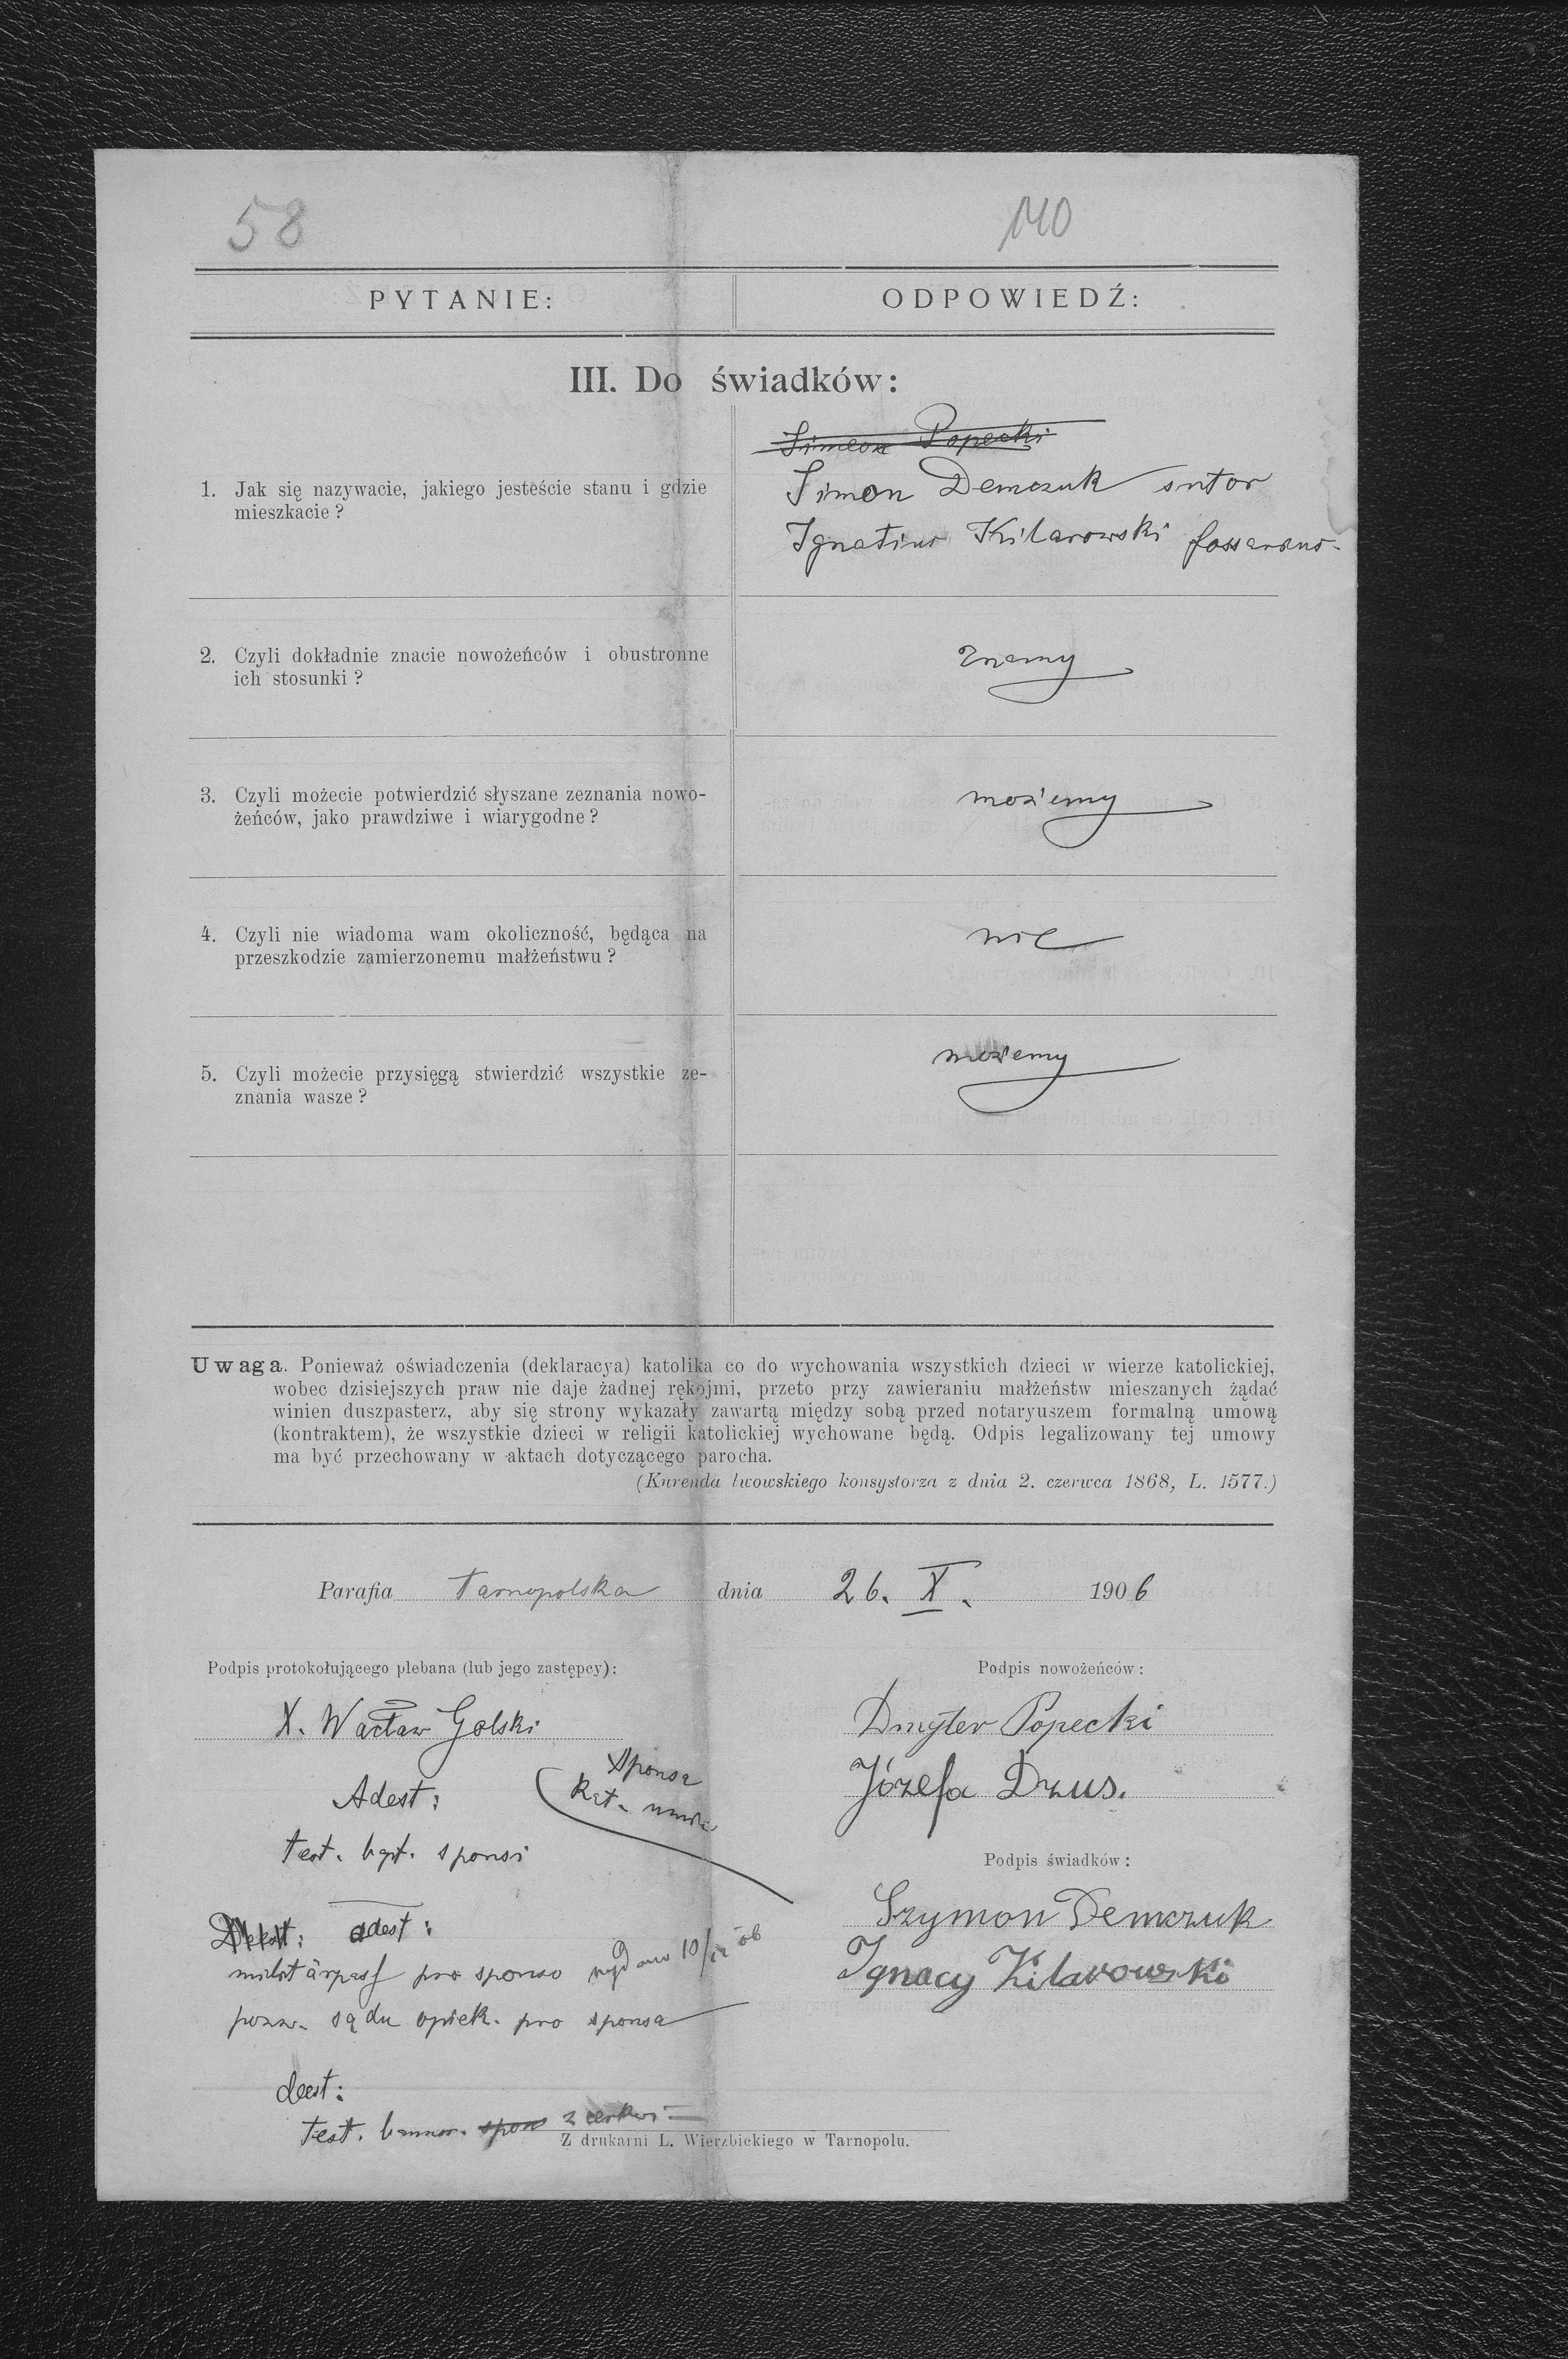 58
140
PYTANIE:
ODPOWIEDŹ:
III. Do świadków:
Simeon Popecki
1. Jak się nazywacie, jakiego jesteście stanu i gdzie
mieszkacie?
Simon Demczuk sutor
Ignatius Kilarowski fossarius.
2. Czyli dokładnie znacie nowożeńców i obustronne
ich stosunki?
znamy
3. Czyli możecie potwierdzić słyszane zeznania nowo-
żeńców, jako prawdziwe i wiarygodne?
możemy
4. Czyli nie wiadoma wam okoliczność, będąca na
przeszkodzie zamierzonemu małżeństwu?
nie
5. Czyli możecie przysięgą stwierdzić wszystkie ze-
znania wasze?
możemy
Uwaga. Ponieważ oświadczenia (deklaracya) katolika co do wychowania wszystkich dzieci w wierze katolickiej,
wobec dzisiejszych praw nie daje żadnej rękojmi, przeto przy zawieraniu małżeństw mieszanych żądać
winien duszpasterz, aby się strony wykazały zawartą między sobą przed notaryuszem formalną umową
(kontraktem), że wszystkie dzieci w religii katolickiej wychowane będą. Odpis legalizowany tej umowy
ma być przechowany w aktach dotyczącego parocha.
(Kurenda lwowskiego konsystorza z dnia 2. czerwca 1868, L. 1577.)
Parafia Tarnopolska dnia 26. X. 1906
Podpis protokołującego plebana (lub jego zastępcy):
X. Wacław Golski
Adest:
sponsa
Kat.
test. bapt. sponsi
adest:
militärpass pro sponso 10/
pozw. sądu opiek. pro sponsa
deest:
test. bannor. z cerkwi
Podpis nowożeńców:
Dmyter Popecki
Józefa Dzus.
Podpis świadków:
Szymon Demczuk
Ignacy Kilarowski
Z drukarni L. Wierzbickiego w Tarnopolu.